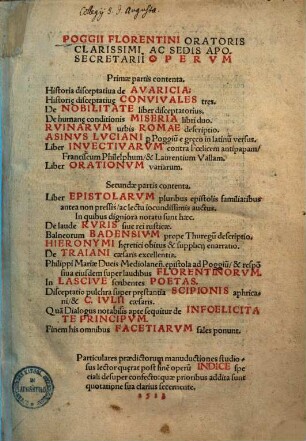 Collegij S. J. Augustæ.
POGGII FLORENTINI ORATORIS
CLARISSIMI, AC SEDIS APO.
SECRETARII OPERVM
Primæ partis contenta.
Historia disceptatiua de AVARICIA:
Historię disceptatiuę CONVIVALES tres.
De NOBILITATE liber disceptatorius.
De humanę conditionis MISERIA libri duo.
RVINARVM urbis ROMAE descriptio.
ASINVS LVCIANI ꝑ Poggiũ e græco in latinũ versus.
Liber INVECTIVARVM contra Fœlicem antipapam/
Franciscum Philelphum/& Laurentium Vallam.
Liber ORATIONVM variarum.
Secundæ partis contenta.
Liber EPISTOLARVM pluribus epistolis familiaribus
antea non pressis/ac lectu iocundissimis auctus.
In quibus digniora notatu sunt hæc.
De laude RVRIS siue rei rusticæ.
Balneorum BADENSIVM prope Thuregũ descriptio.
HIERONYMI heretici obitus & supplicij enarratio.
De TRAIANI cæsaris excellentia.
Philippi Mariæ Ducis Mediolaneñ. epistola ad Poggiũ/& respõ
siua eiusdem super laudibus FLORENTINORVM.
In LASCIVE scribentes POETAS.
Disceptatio pulchra super prestantia SCIPIONIS aphricani/
& C. IVLII cæsaris.
Quã Dialogus notabilis apte sequitur de INFOELICITA
TE PRINCIPVM.
Finem his omnibus FACETIARVM sales ponunt.
Particulares prædictorum manuductiones studio
sus lector quęrat post finẽ operũ INDICE spe
ciali desuper confecto: quæ prioribus addita sunt
quotatione sua clarius secernente.
1513